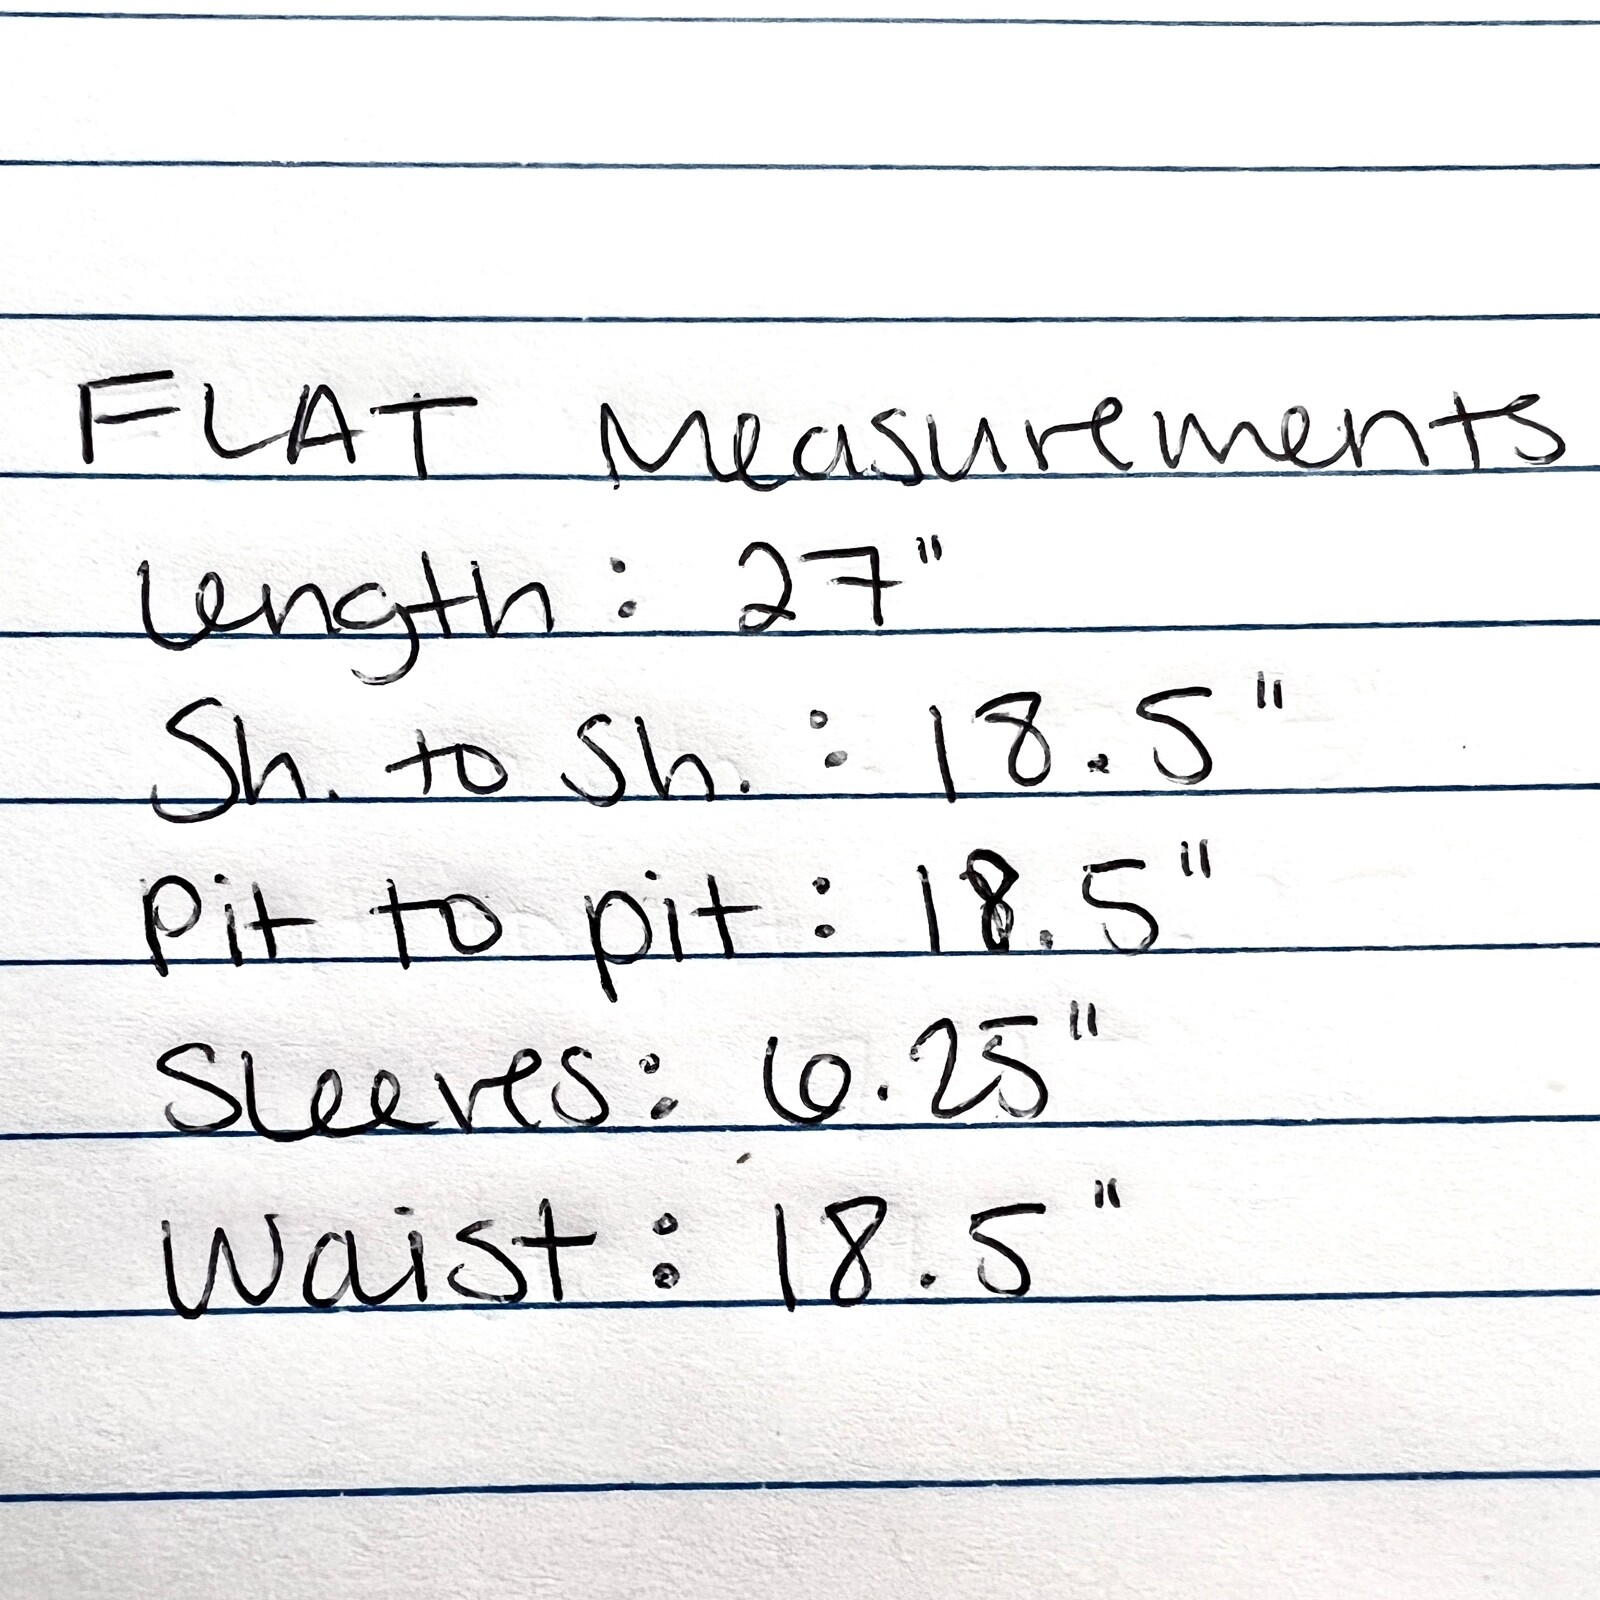 FLAT Measurements
Length: 27"
Sh. to Sh. : 18.5"
Pit to pit : 18.5"
Sleeves: 6.25"
Waist : 18.5"